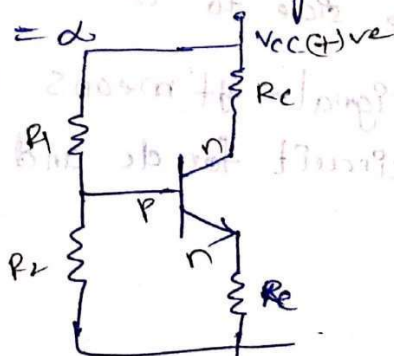 = α
Vcc(+)ve
Rc
R1
n
P
R2
n
Re